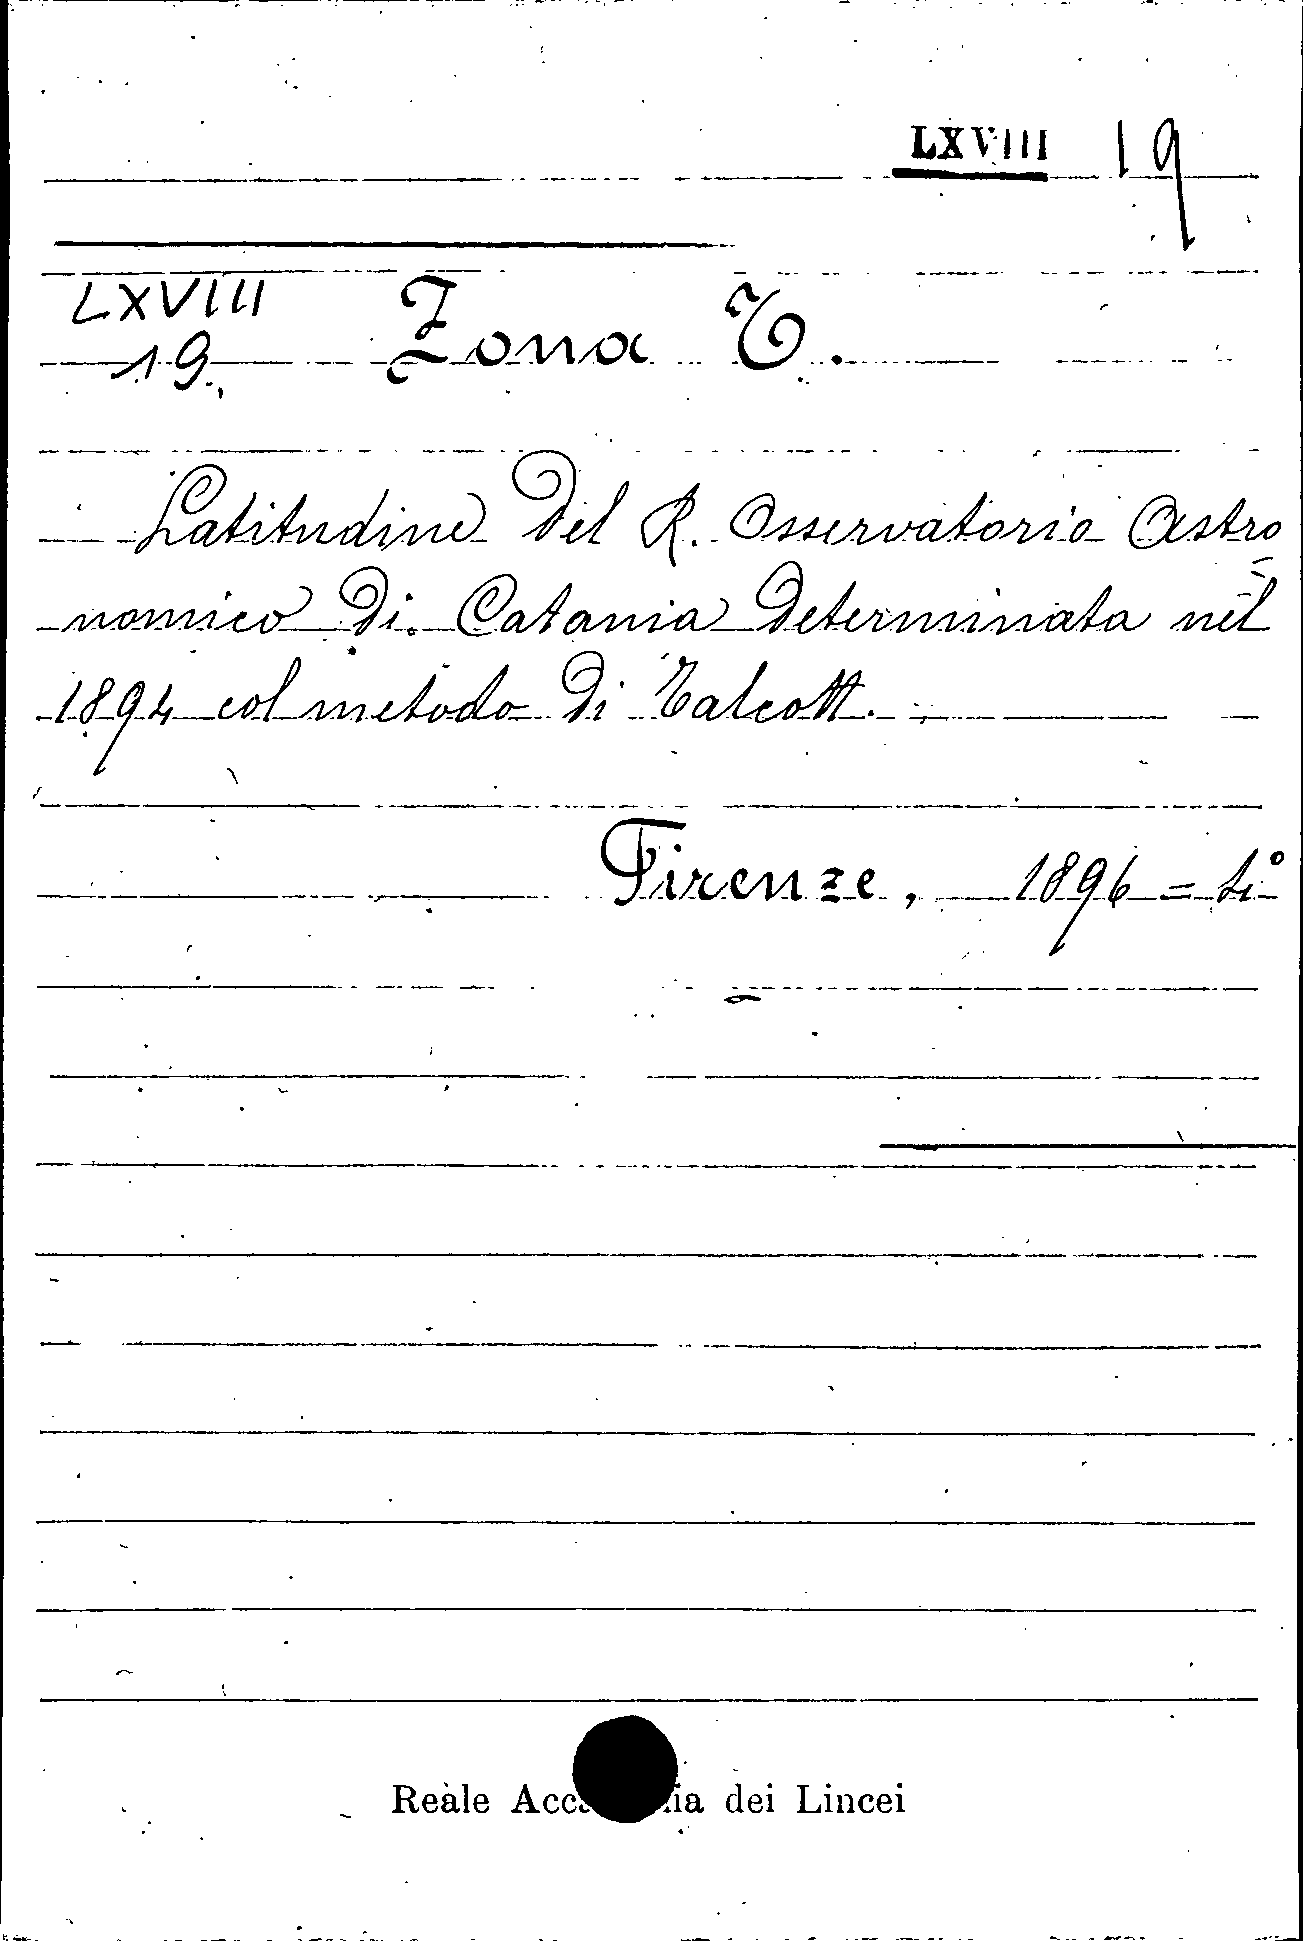 LXVIII 19
LXVIII Zona T.
19.
Latitudine del R. Osservatorio Astro=
nomico di Catania determinata nel
1894 col metodo di Talcott.
Firenze, 1896 = 4°
Reale Acca ia dei Lincei